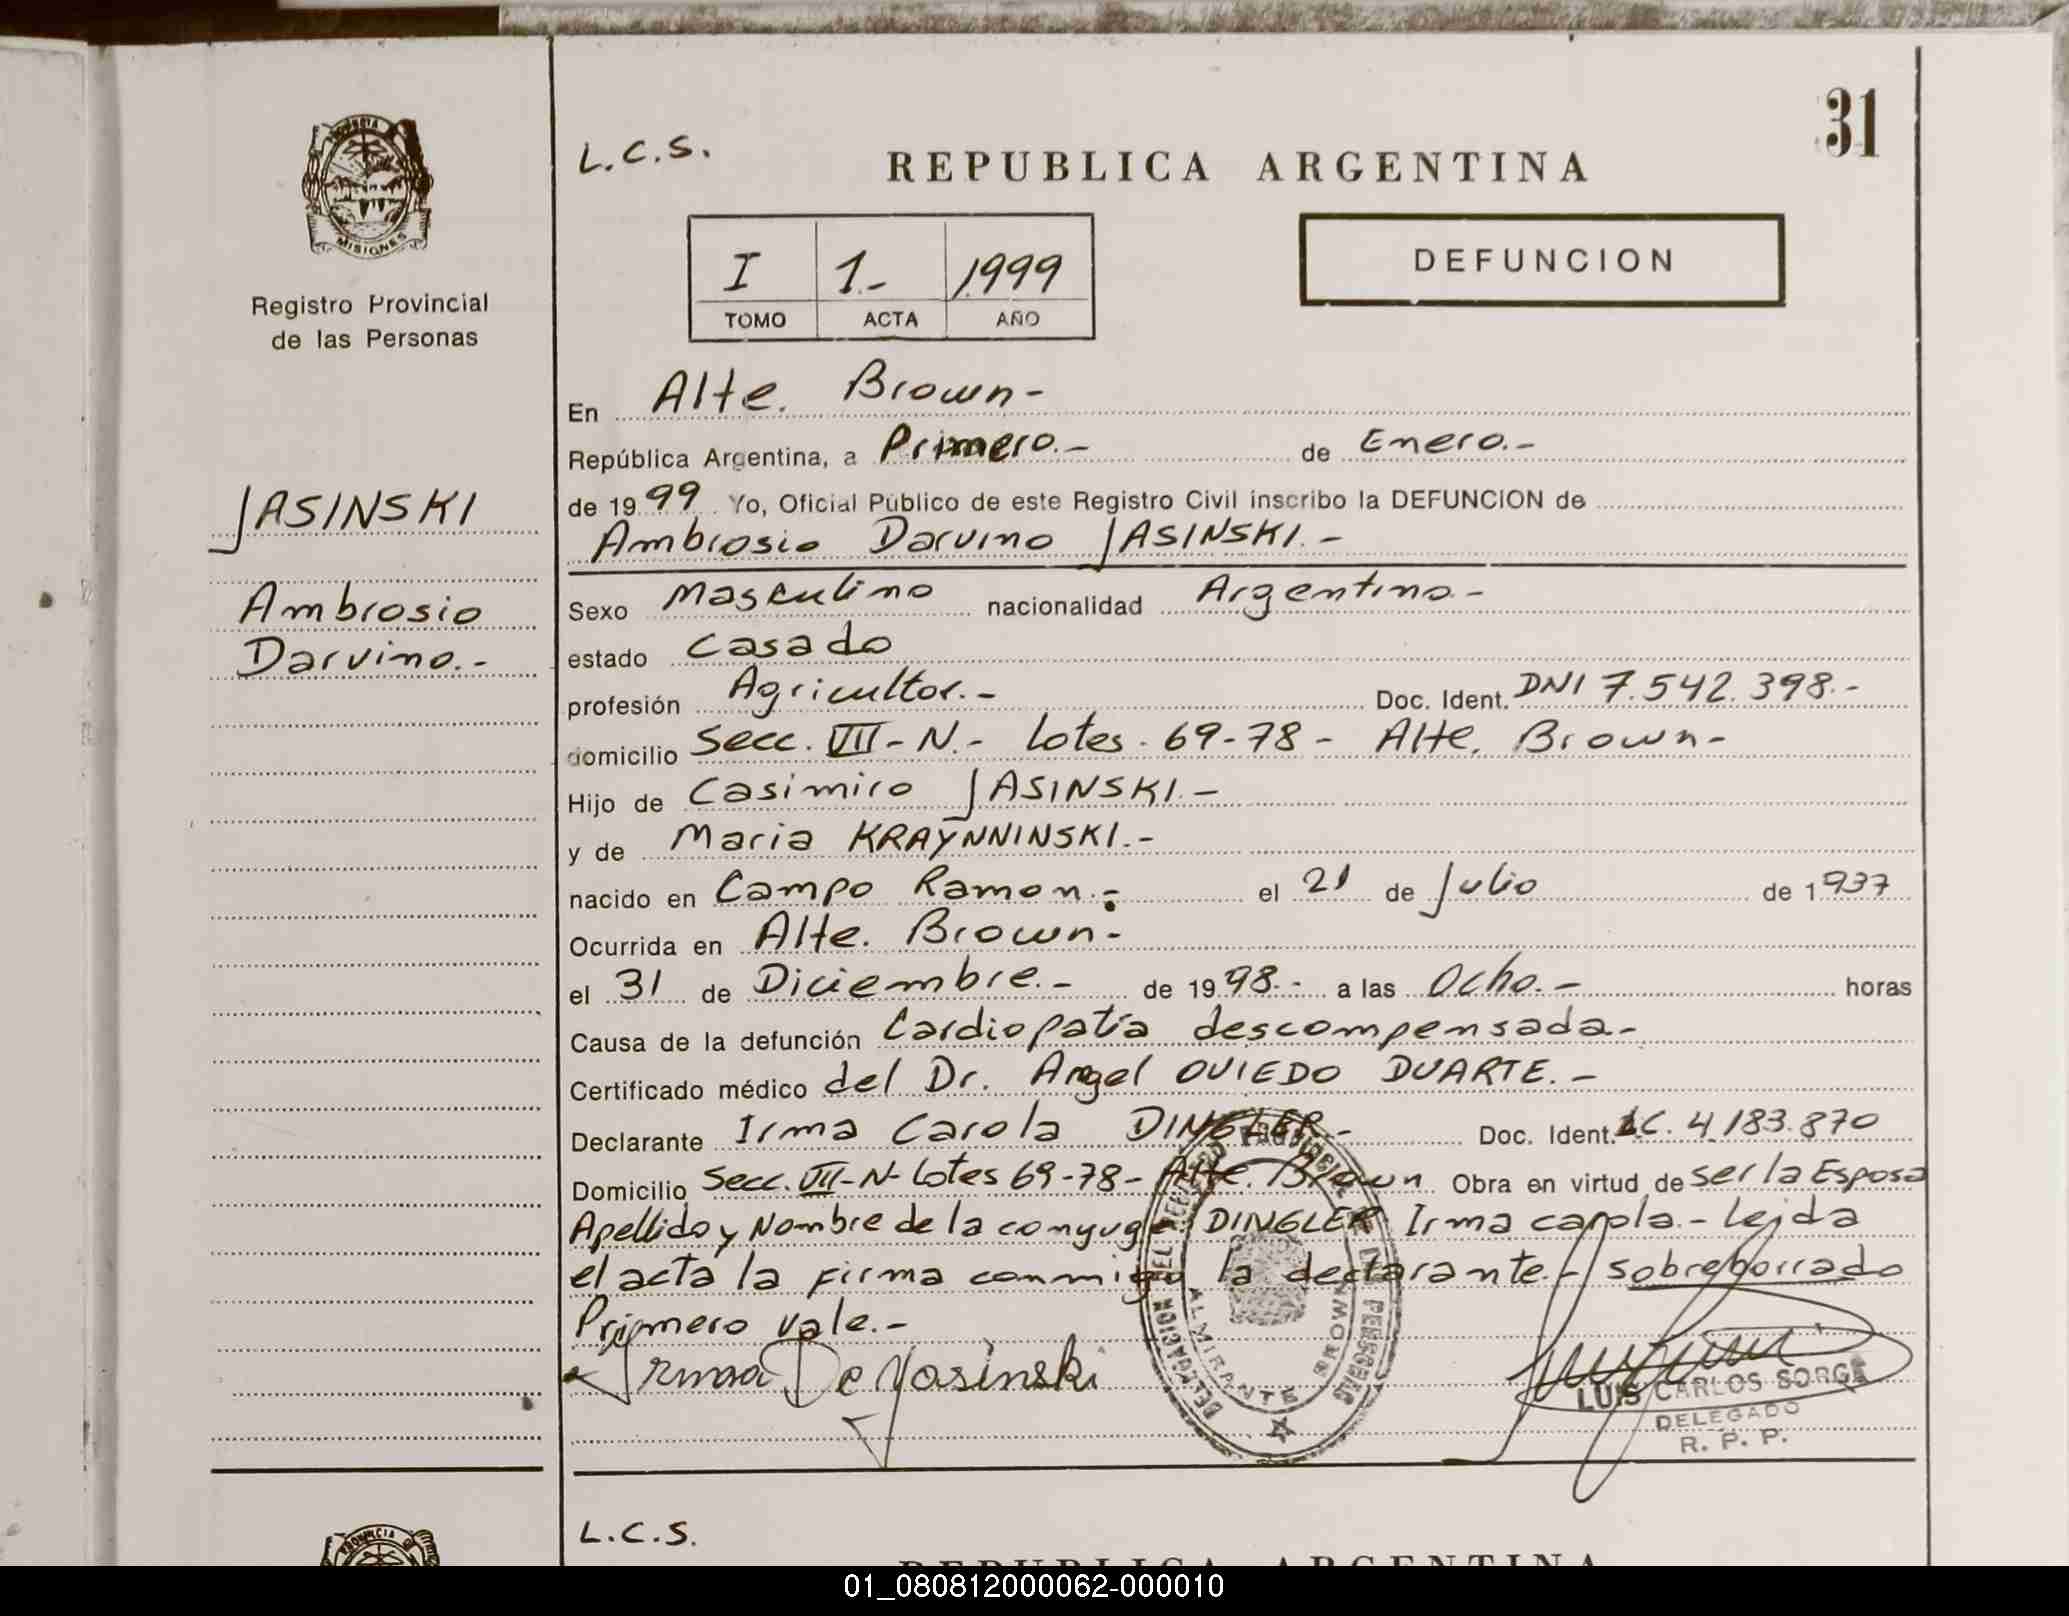 31
L.C.S.
REPUBLICA ARGENTINA
PROVINCIA
MISIONES
Registro Provincial
de las Personas
I 1.- 1999
TOMO ACTA AÑO
DEFUNCION
JASINSKI
Ambrosio
Darvino.-
En Alte. Brown-
República Argentina, a Primero.- de Enero.-
de 1999 Yo, Oficial Público de este Registro Civil inscribo la DEFUNCION de
Ambrosio Darvino JASINSKI.-
Sexo Masculino nacionalidad Argentino.-
estado Casado
profesión Agricultor.- Doc. Ident. DNI 7.542.398.-
domicilio Secc. VII-N.- Lotes. 69-78- Alte. Brown-
Hijo de Casimiro JASINSKI.-
y de Maria KRAYNNINSKI.-
nacido en Campo Ramon.- el 21 de Julio de 1937
Ocurrida en Alte. Brown-
el 31 de Diciembre.- de 1998.- a las Ocho.- horas
Causa de la defunción Cardiopatía descompensada-
Certificado médico del Dr. Angel OVIEDO DUARTE.-
Declarante Irma Carola DINGLER.- Doc. Ident. LC. 4.183.870
Domicilio Secc. VII-N- Lotes 69-78- Alte. Brown Obra en virtud de ser la Esposa
Apellido y Nombre de la conyuge DINGLER Irma carola.- Leida
el acta la firma conmigo la declarante.- sobreborrado
Primero vale.-
Irma De Yasinski
DELEGACION DEL REGISTRO PROVINCIAL DE LAS PERSONAS
ALMIRANTE BROWN
LUIS CARLOS SORGE
DELEGADO
R. P. P.
L.C.S.
PROVINCIA
REPUBLICA ARGENTINA
01_080812000062-000010